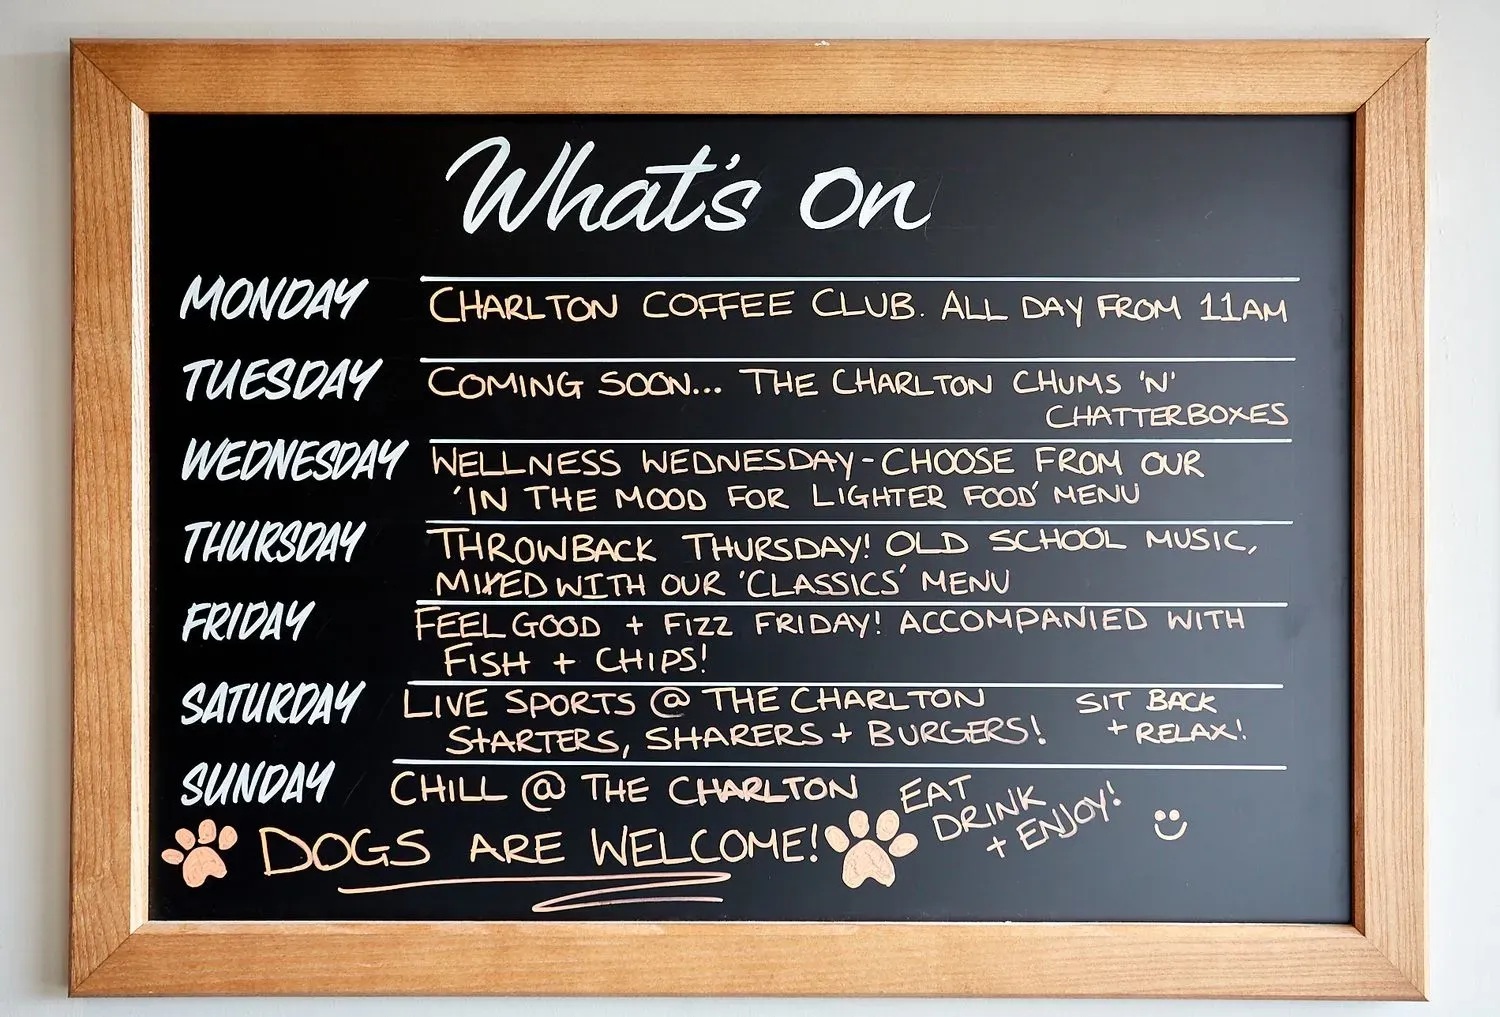 What's on
MONDAY CHARLTON COFFEE CLUB. ALL DAY FROM 11AM
TUESDAY COMING SOON... THE CHARLTON CHUMS 'N'
CHATTERBOXES
WEDNESDAY WELLNESS WEDNESDAY-CHOOSE FROM OUR
'IN THE MOOD FOR LIGHTER FOOD' MENU
THURSDAY THROWBACK THURSDAY! OLD SCHOOL MUSIC,
MIXED WITH OUR 'CLASSICS' MENU
FRIDAY FEEL GOOD + FIZZ FRIDAY! ACCOMPANIED WITH
FISH + CHIPS!
SATURDAY LIVE SPORTS @ THE CHARLTON SIT BACK
STARTERS, SHARERS + BURGERS! + RELAX!
SUNDAY CHILL @ THE CHARLTON EAT
DRINK
+ ENJOY!
DOGS ARE WELCOME!